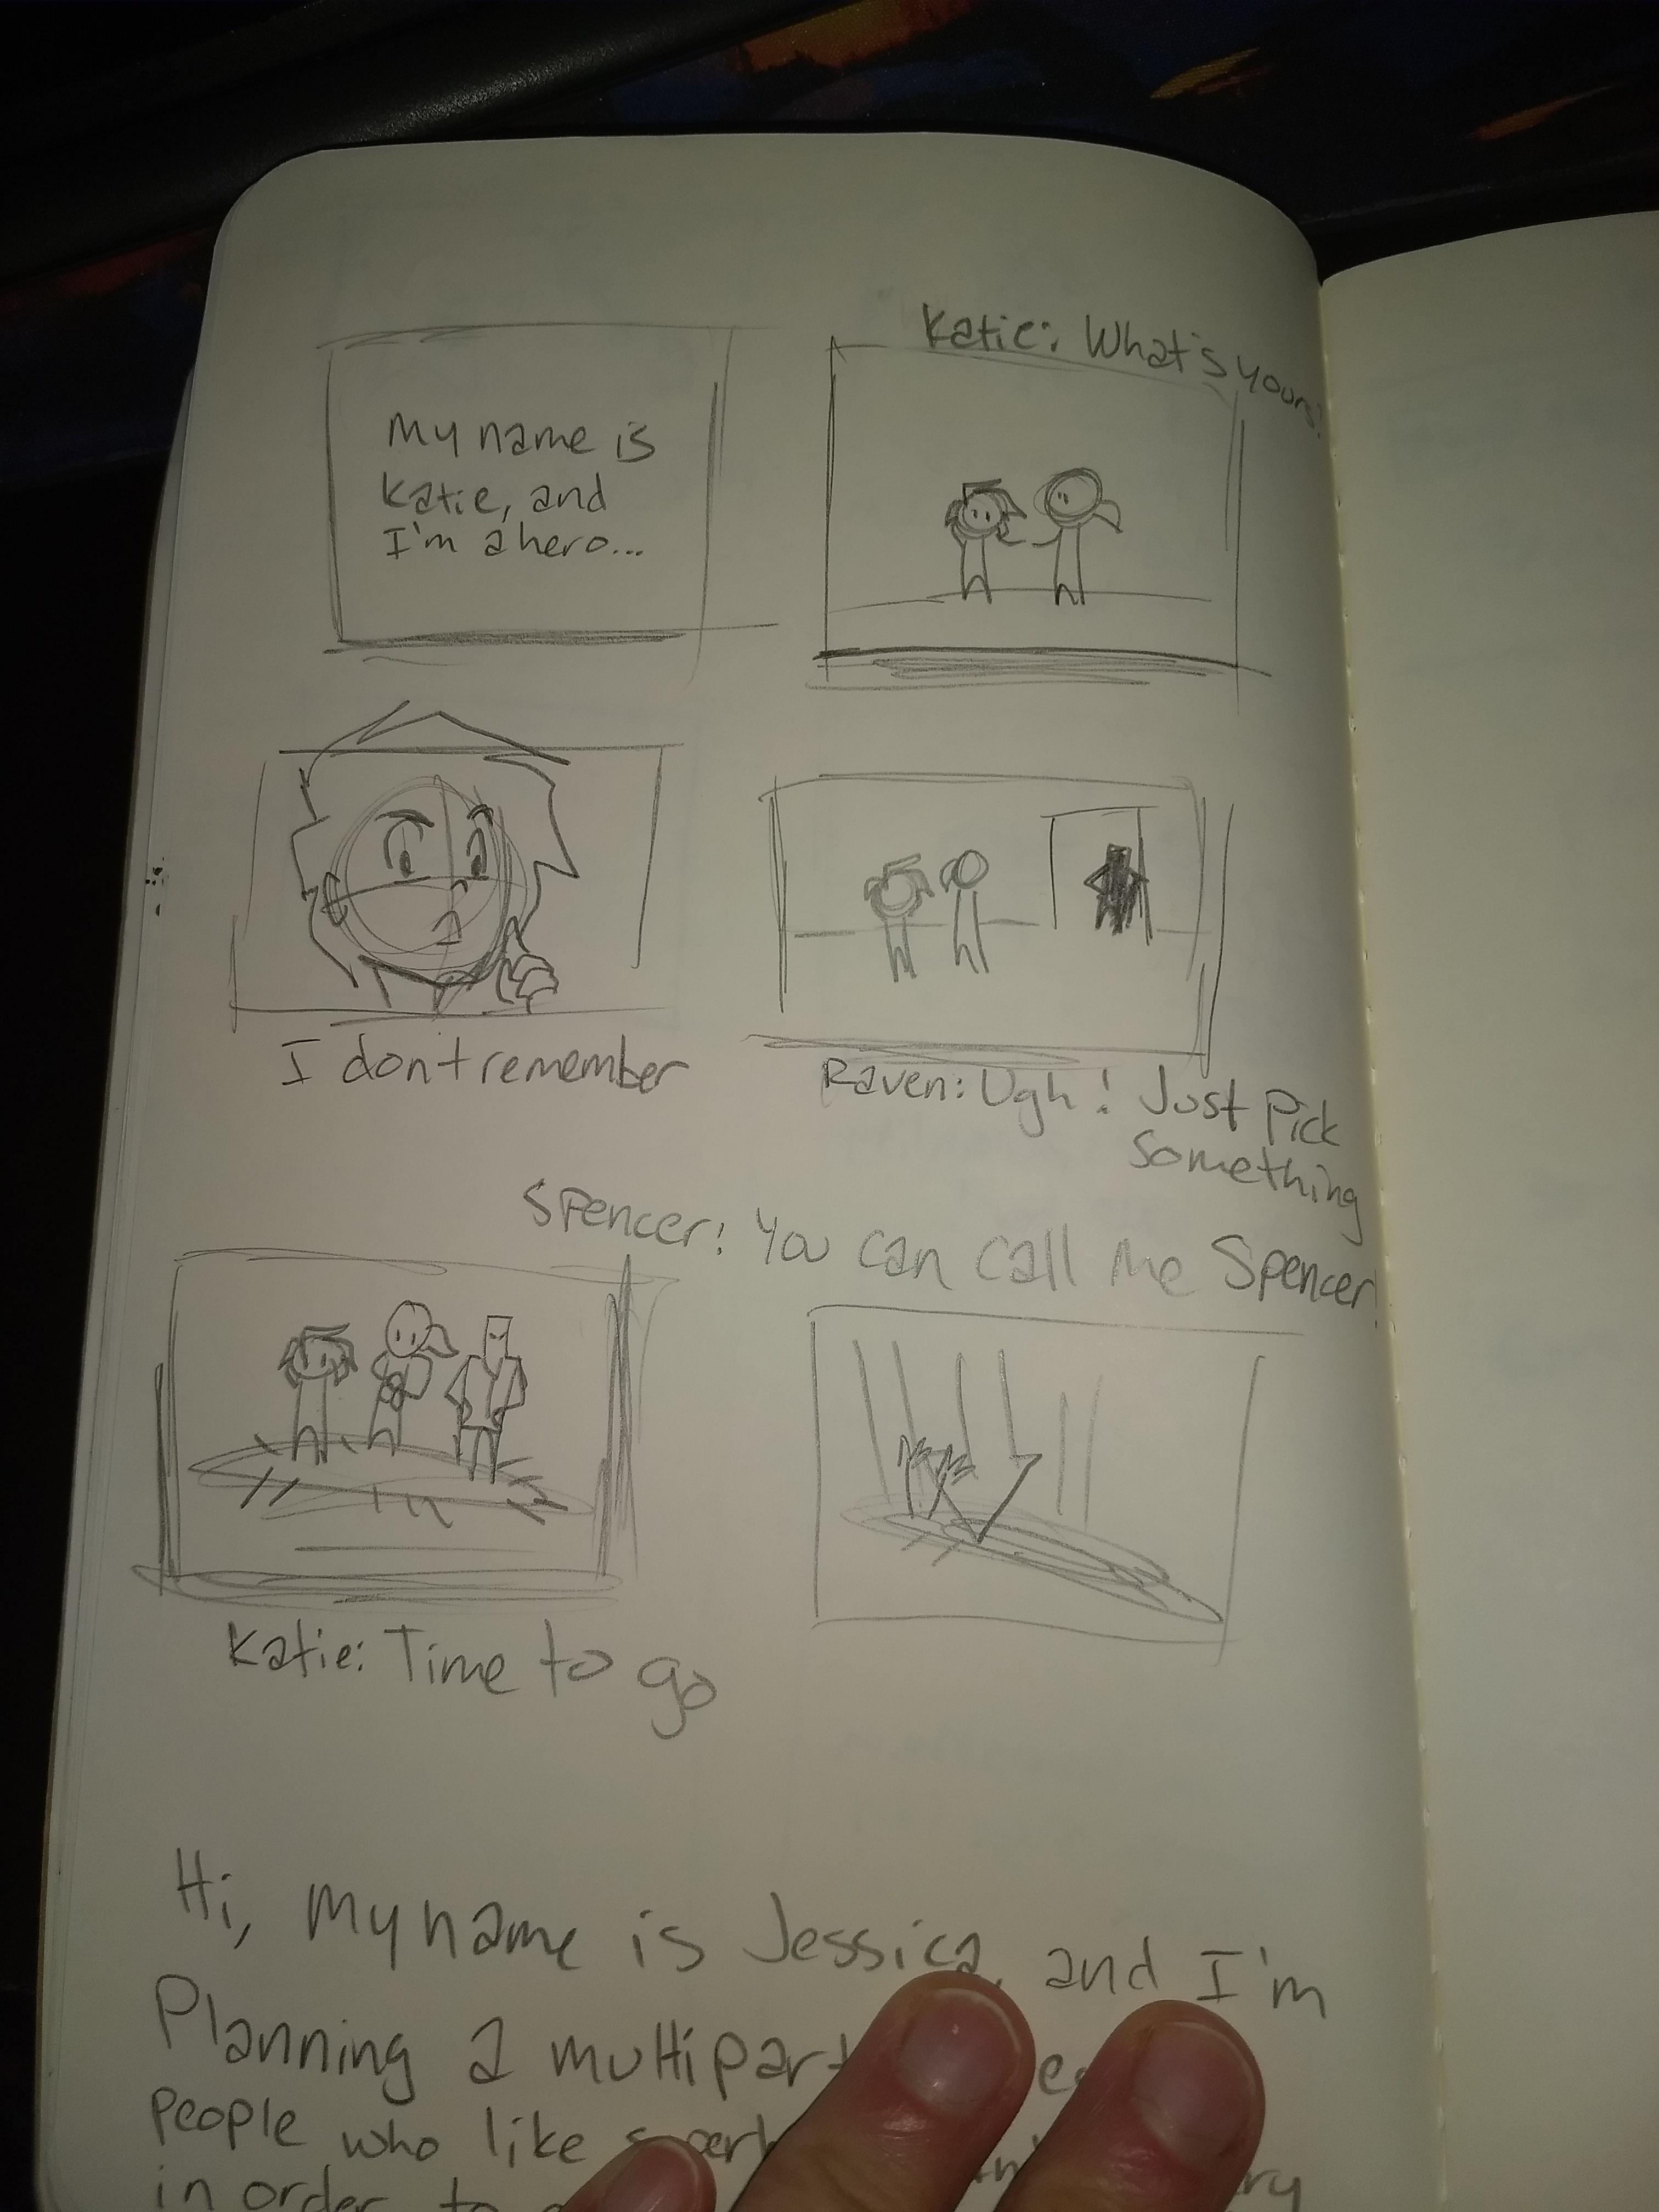 My name is
Katie, and
I'm a hero...
Katie: What's yours?
I don't remember
Raven: Ugh! Just Pick
Something
Spencer: You can call me Spencer!
Katie: Time to go
Hi, my name is Jessica, and I'm
Planning a multipart
People who like
in order to